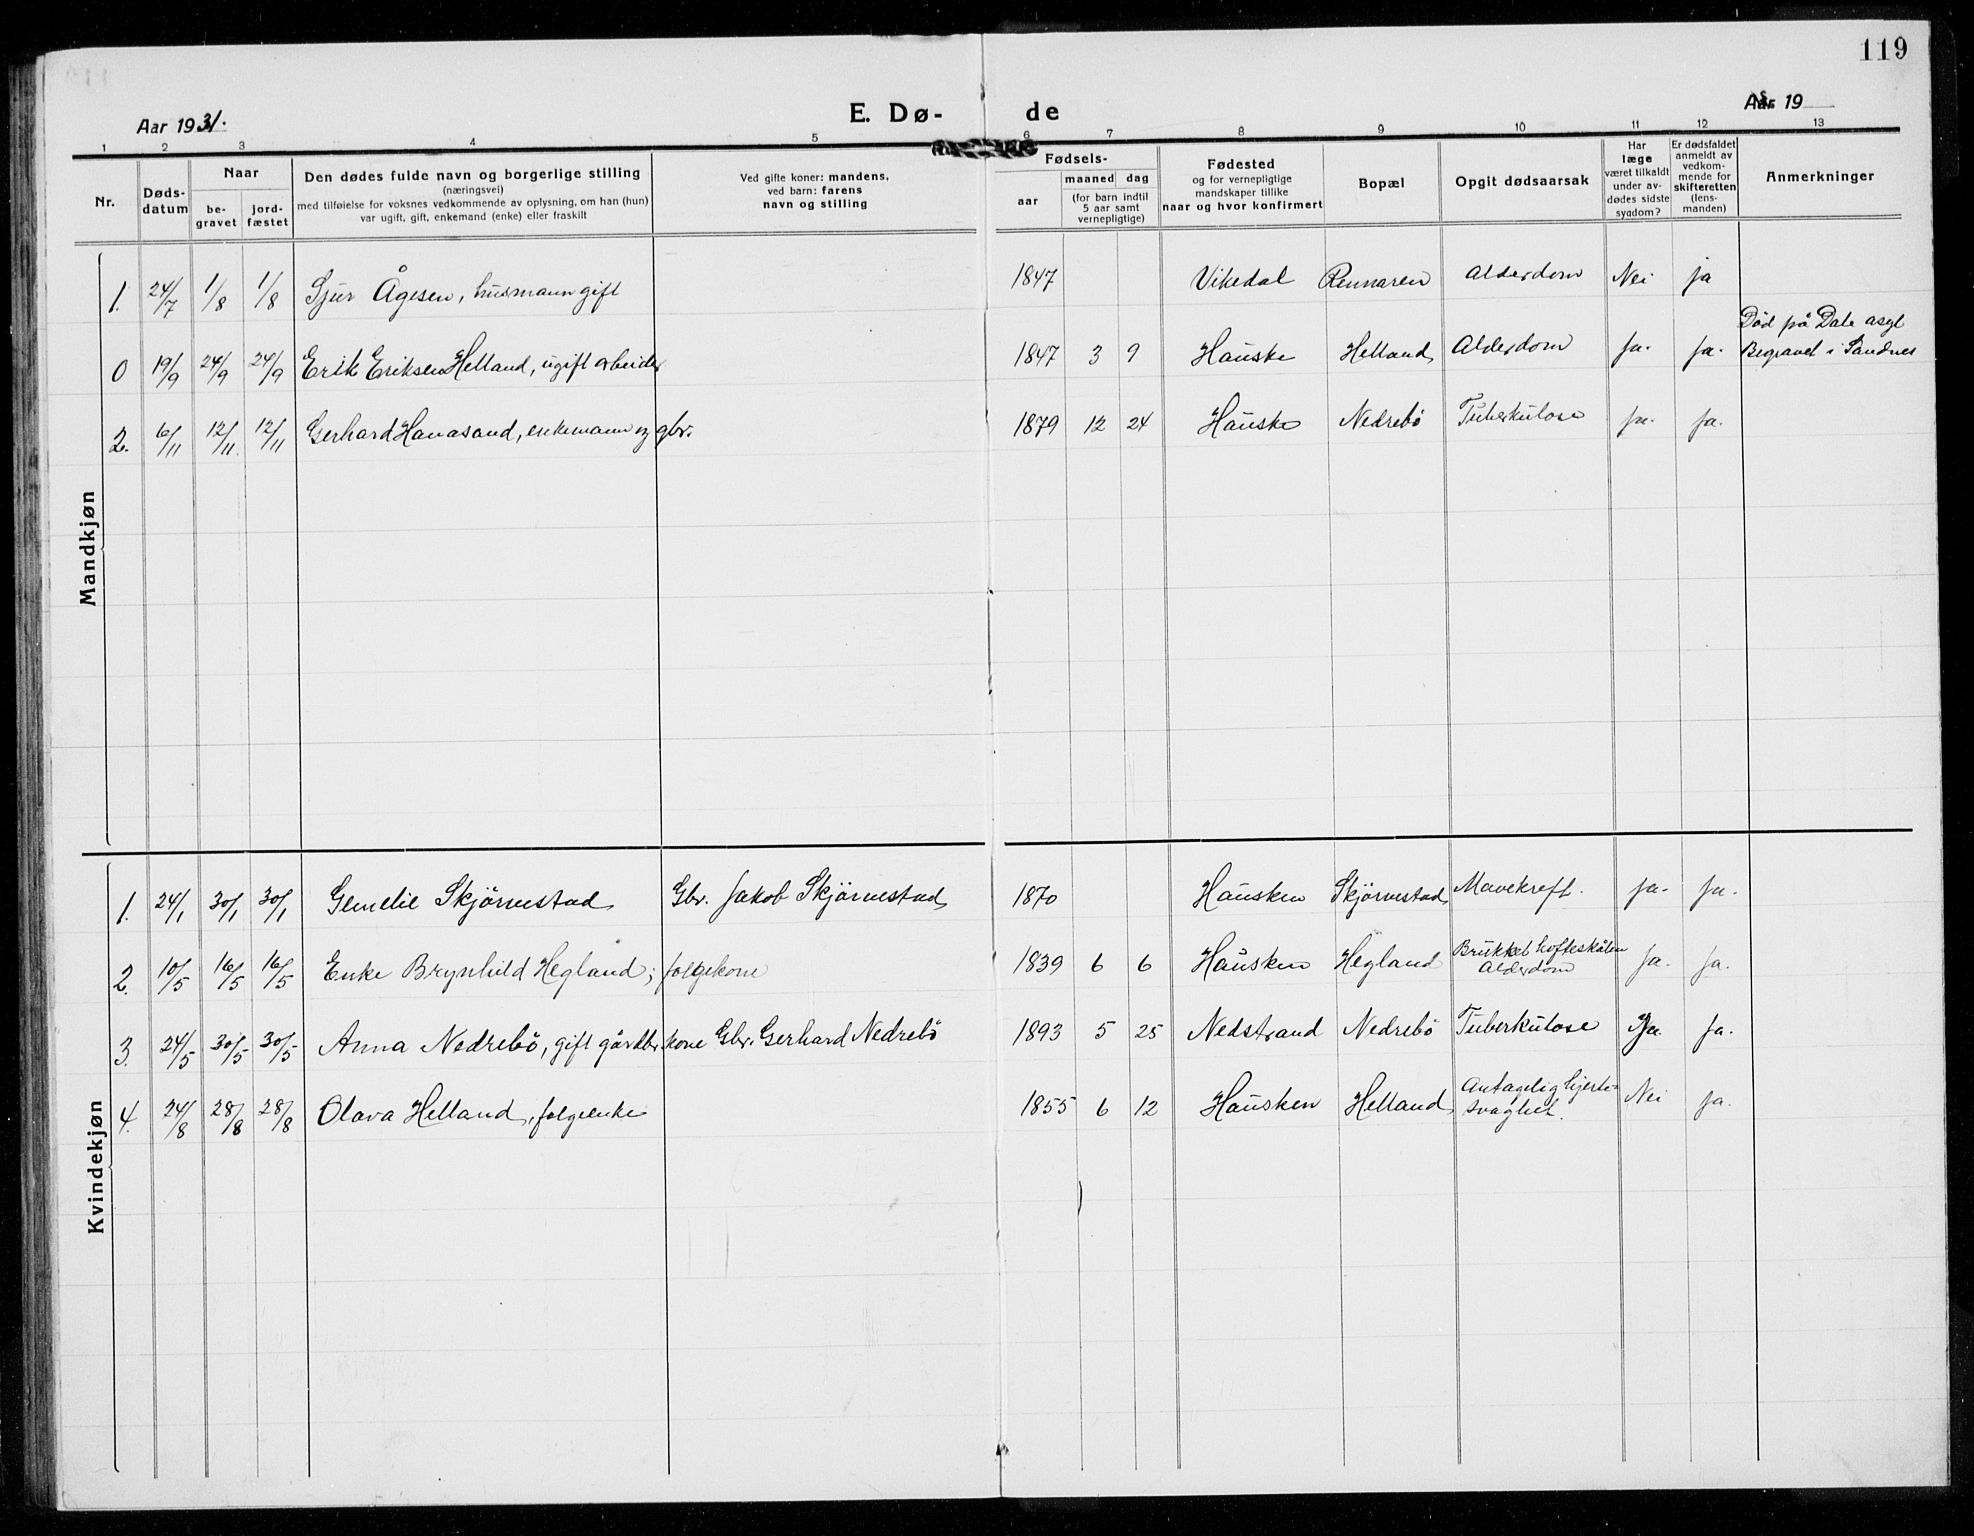 119
Aar 1931.
E. Dø-
de
Aar 19
1 2 3 4 5 6 7 8 9 10 11 12 13
Nr.
Døds-
datum
Naar
be-
gravet
jord-
fæstet
Den dødes fulde navn og borgerlige stilling
(næringsvei)
med tilføielse for voksnes vedkommende av oplysning, om han (hun)
var ugift, gift, enkemand (enke) eller fraskilt
Ved gifte koner: mandens,
ved barn: farens
navn og stilling
Fødsels-
aar
maaned dag
(for barn indtil
5 aar samt
vernepligtige)
Fødested
og for vernepligtige
mandskaper tillike
naar og hvor konfirmert
Bopæl
Opgit dødsaarsak
Har
læge
været tilkaldt
under av-
dødes sidste
sygdom?
Er dødsfaldet
anmeldt av
vedkom-
mende for
skifteretten
(lens-
manden)
Anmerkninger
Mandkjøn
1. 24/7 1/8 1/8 Sjur Ågesen, husmann gift 1847 Vikedal Rennaren Alderdom Nei ja
Død på Dale asyl
0 19/9 24/9 24/9 Erik Eriksen Helland, ugift arbeider 1847 3 9 Hauske Helland Alderdom Ja. Ja. Begravet i Sandnes
2. 6/11 12/11 12/11 Gerhard Hanasand, enkemann og gbr. 1879 12 24 Hauske Nedrebö Tuberkulose Ja. Ja.
Kvindekjøn
1. 24/1 30/1 30/1 Gemelie Skjörnestad Gbr. Jakob Skjörnestad 1870 Hausken Skjörnestad Mavekreft. Ja. Ja.
2. 10/5 16/5 16/5 Enke Brynhild Hegland, folgekone 1839 6 6 Hausken Hegland Brukket hofteskålen Ja. Ja.
Alderdom
3. 24/5 30/5 30/5 Anna Nedrebö, gift gårdbr. kone Gbr. Gerhard Nedrebö 1893 5 25 Nedstrand Nedrebö Tuberkulose Ja. Ja.
4. 24/8 28/8 28/8 Olava Helland, folgeenke 1855 6 12 Hausken Helland Antagelig hjerte- Nei Ja.
svaghet.